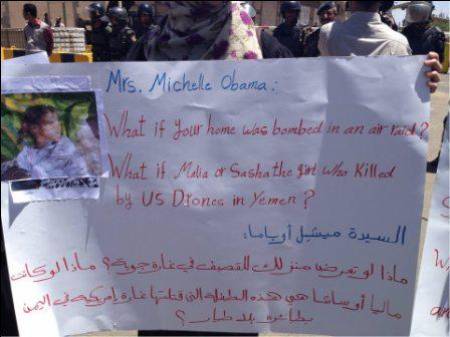 Mrs. Michelle Obama:
What if your home was bombed in an air raid?
What if Malia or Sasha the girl who killed
by US Drones in Yemen?
السيدة ميشيل أوباما:
ماذا لو تعرض منزلك للقصف في غارة جوية؟ ماذا لو كانت
ماليا أو ساشا هي هذه الطفلة التي قتلتها غارة أمريكية في اليمن
بطائرة بلا طيار؟